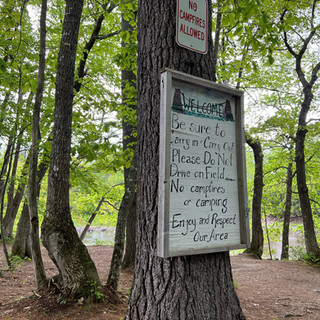 NO
CAMPFIRES
ALLOWED
WELCOME
Be sure to
Carry in - Carry Out
Please Do Not
Drive on Field
No campfires
or camping
Enjoy and Respect
Our Area